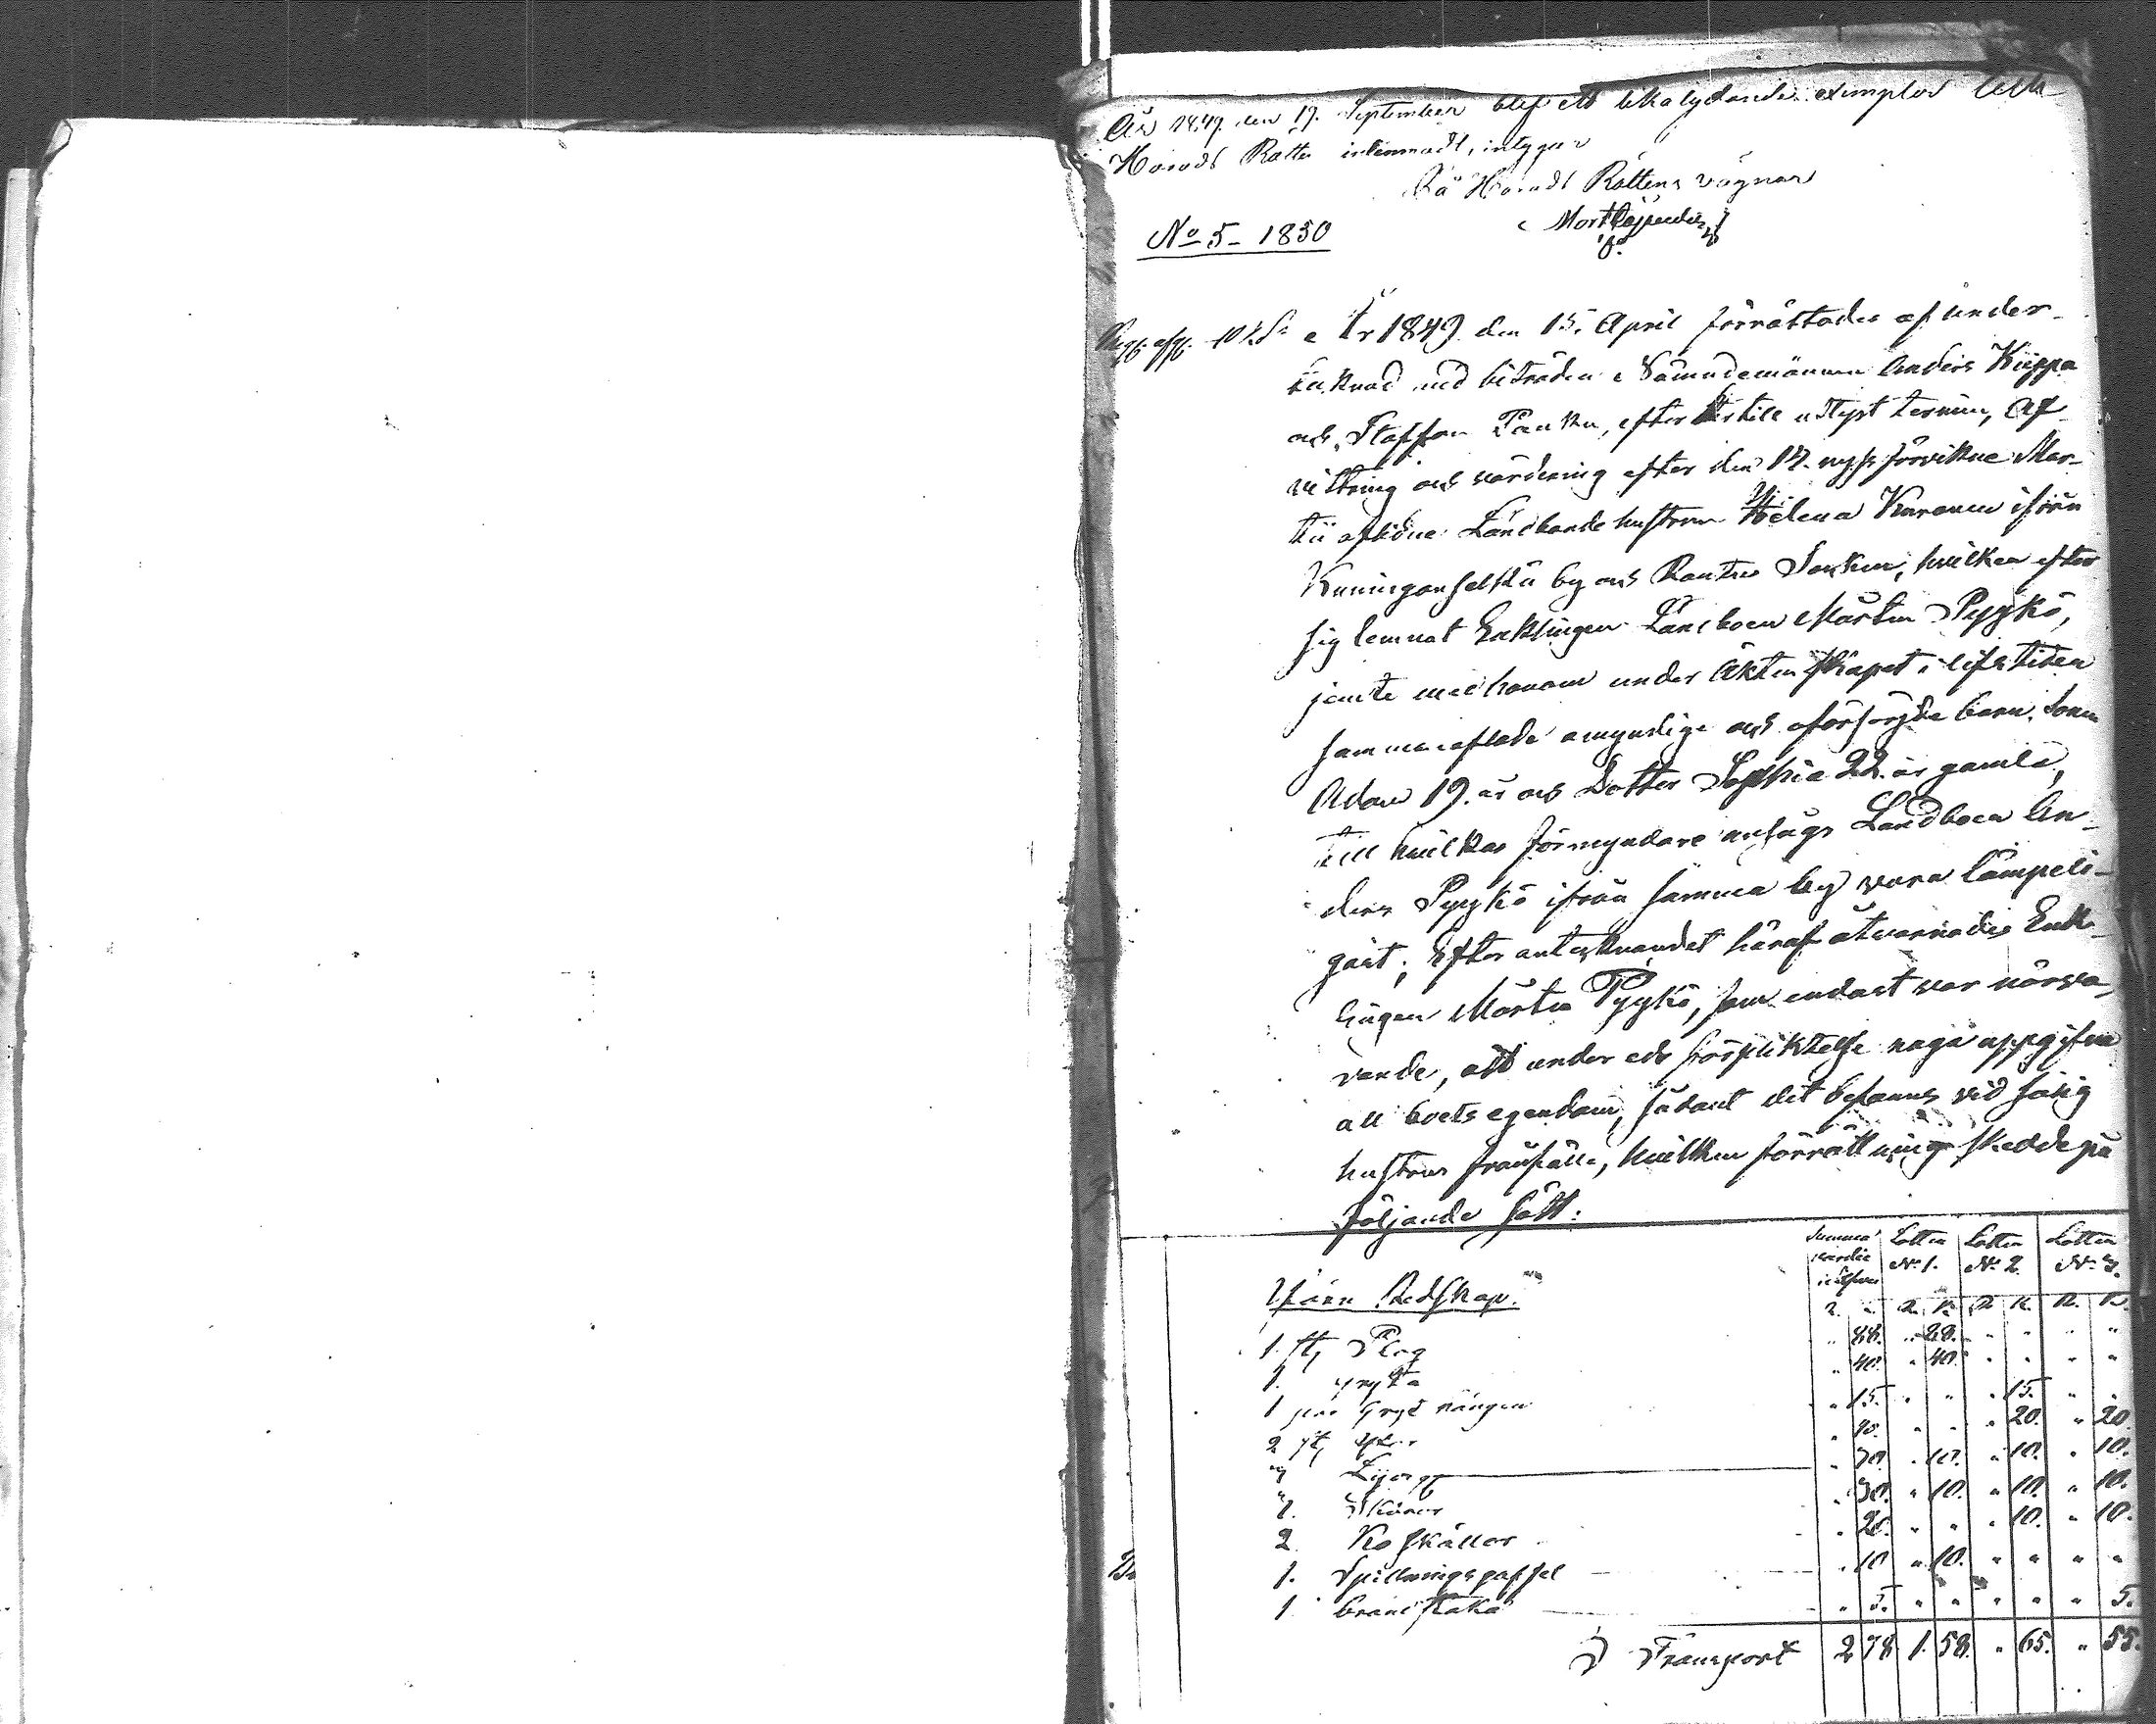 År 1849 den 17. September blef ett lika lydande exemplar till
Härads Rätten inlemnadt, intygar
På Härads Rättens vägnar
No 5 - 1850
År 1849 den 15. April förrättades af under-
tecknad med biträden Nämndemännen Anders Kiippa
och Staffan Paukku, efter dertill utlyst termin, af-
vittring och värdering efter den 14. nyss förvikne Mar-
tii aflidne Landbonde hustrun Helena Kuronen ifrån
by och Rautus Socken, hvilken efter
sig lemnat Enklingen Landboen Mårten Pyykö,
jemte med honom under Äktenskapet i lifstiden
sammanaflade omyndige och oförsörjde barn, Sonen
Adam 19. år och Dotter Sophia 22. år gamla,
till hvilkas förmyndare ansågs Landboen An-
ders Pyykö ifrån samma by vara lämpeli-
gast; Efter antecknandet häraf åtvarnades Enk-
lingen Mårten Pyykö, som endast var närva-
rande, att under eds förpliktelse noga uppgifva
all boets egendom, sådant det befanns vid salig
hustrus frånfälle, hvilken förrättning skedde på
följande sätt:
Summa värdie Lotten No 1. Lotten No 2. Lotten No 3.
Järn Redskap.
R. K. R. K. R. K. R. K.
1. st. Plog " 88. " 88. " " " "
1. gryta " 40. " 40. " " " "
1 par Gryt " 15. " " " 15. " "
2 st. " 40. " " " 20. " 20.
3 " 30. " 10. " 10. " 10.
3. Skäror " 30. " 10. " 10. " 10.
2. Ko skällor " 20. " " " 10. " 10.
1. Spillningsgaffel " 10 " 10. " " " "
1 brand staka " 5. " " " " " 5.
Transport 2 78. 1. 58. " 65. " 55.